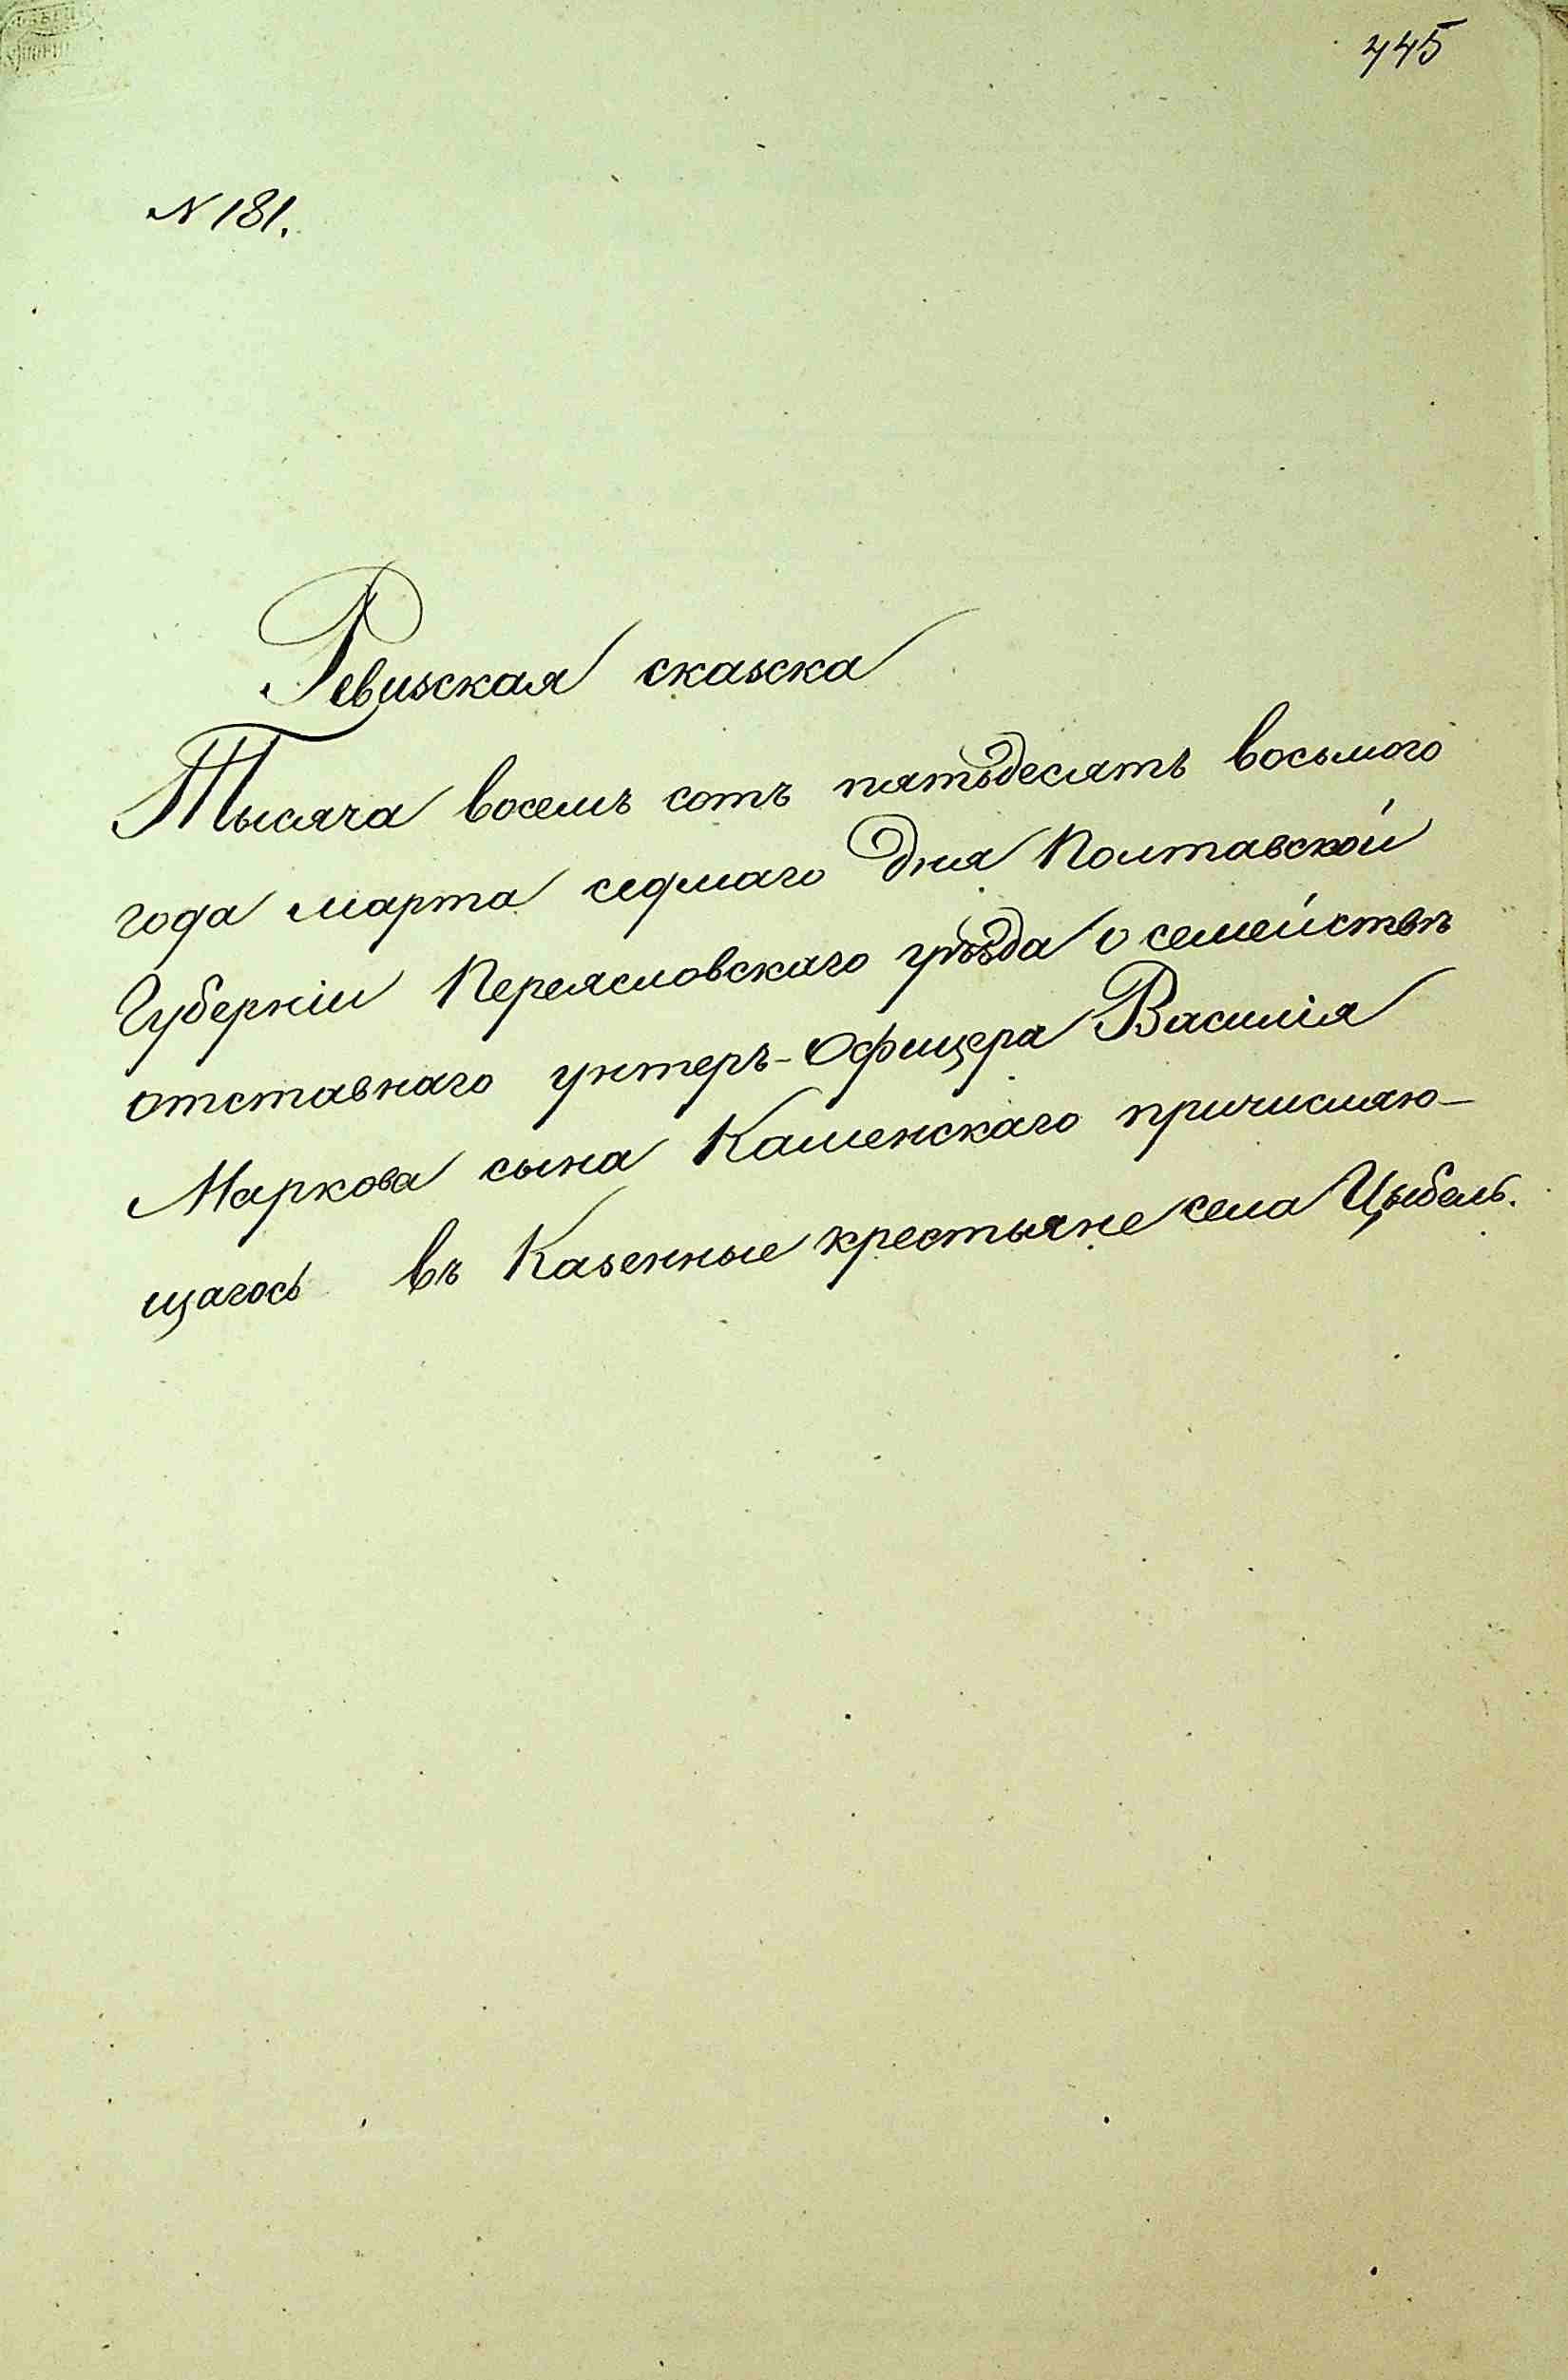 445
N 181.
Ревизская сказка
Тысяча восемъ сотъ пятьдесятъ восьмого
года марта седмаго дня Полтавской
Губерніи Переясловскаго уѣзда о семействѣ
отставнаго унтеръ-Офицера Василія
Маркова сына Каменскаго причисляю-
щагось въ Казенные крестьяне села Цыбель.